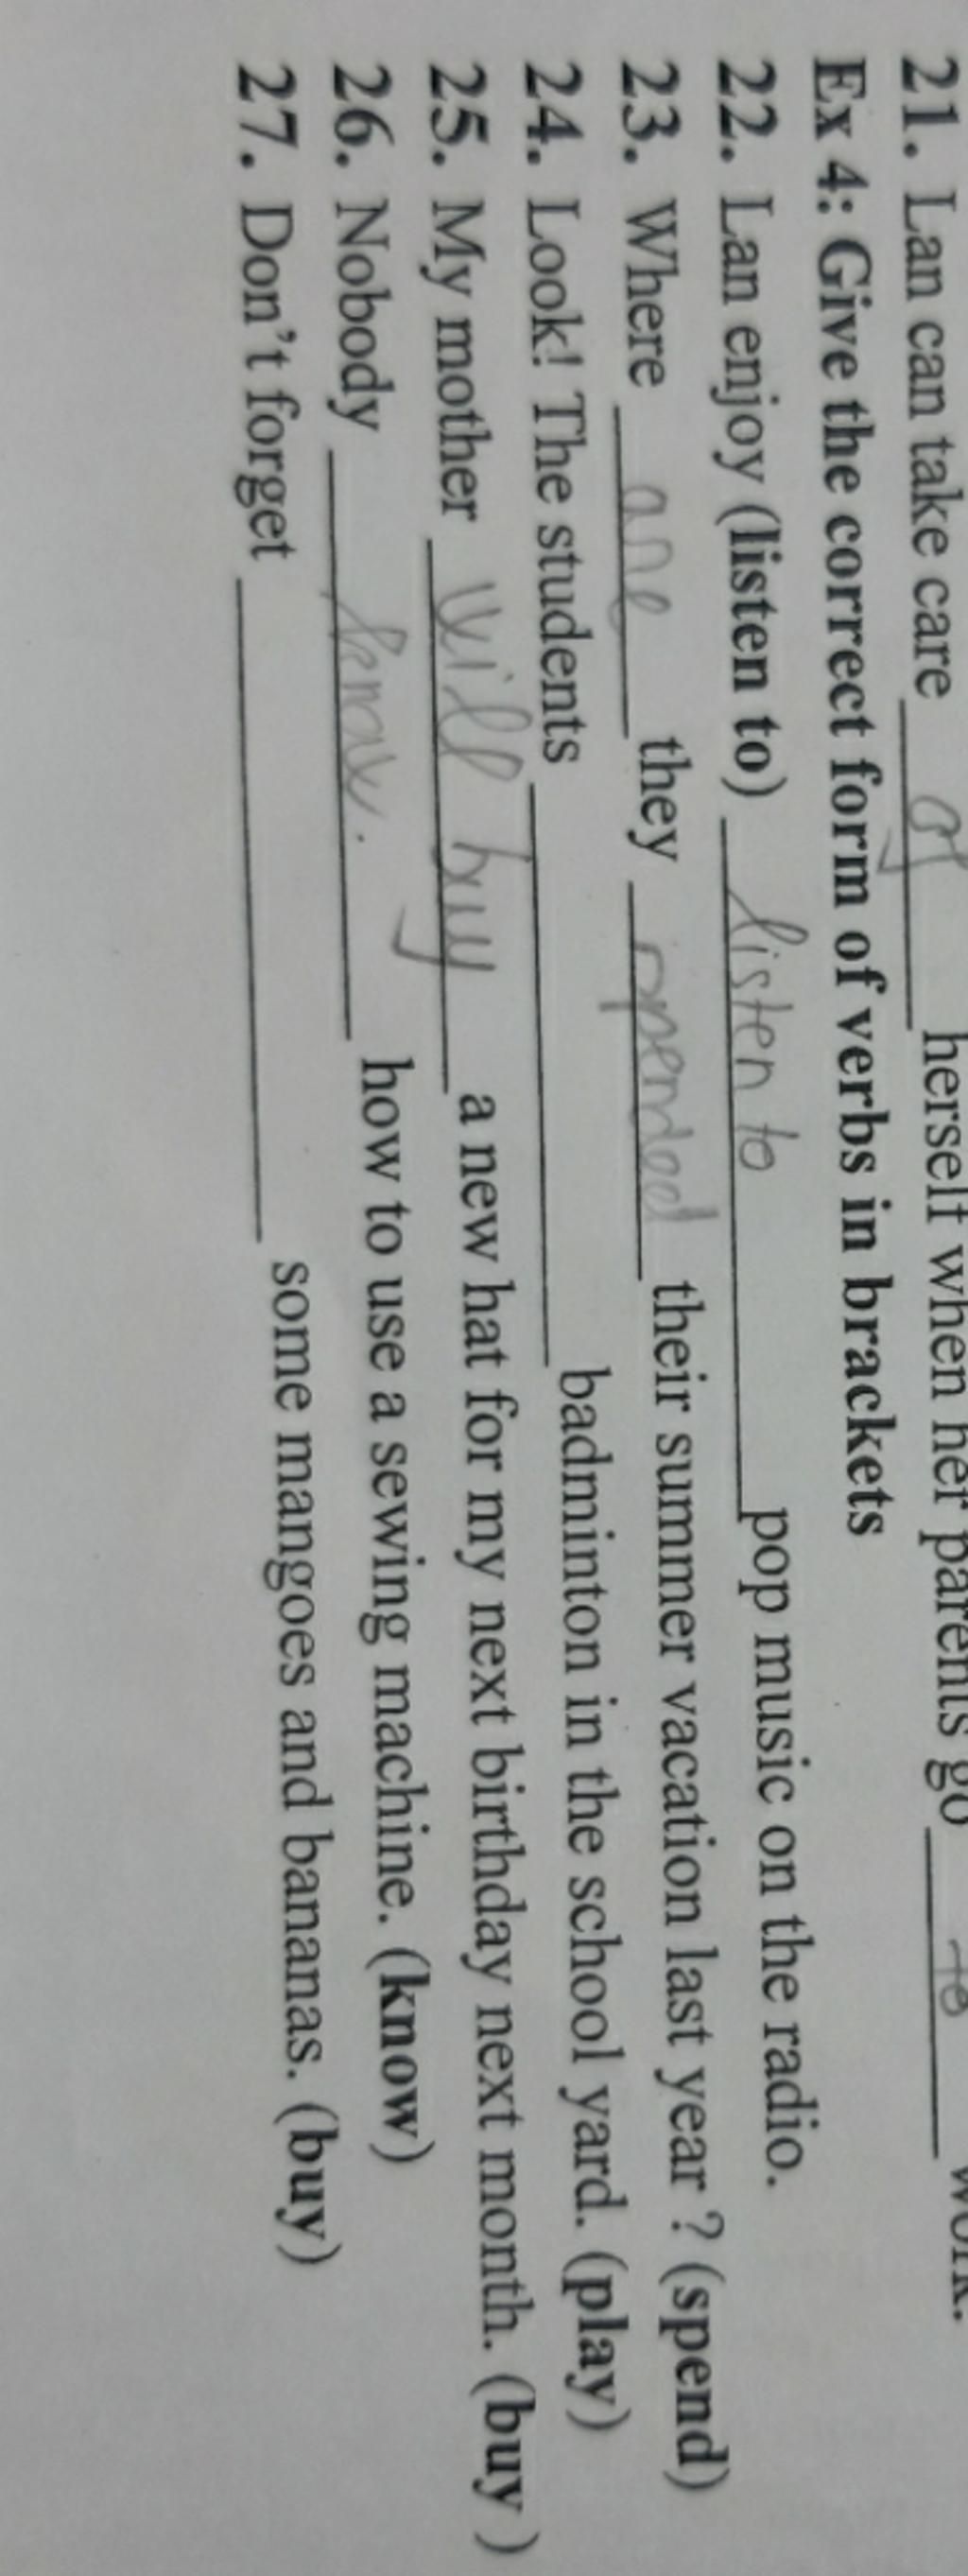 21. Lan can take care of herself when her parents go to work.
Ex 4: Give the correct form of verbs in brackets
22. Lan enjoy (listen to) listen to pop music on the radio.
23. Where are they spended their summer vacation last year ? (spend)
24. Look! The students ________ badminton in the school yard. (play)
25. My mother will buy a new hat for my next birthday next month. (buy )
26. Nobody know. how to use a sewing machine. (know)
27. Don't forget ________ some mangoes and bananas. (buy)